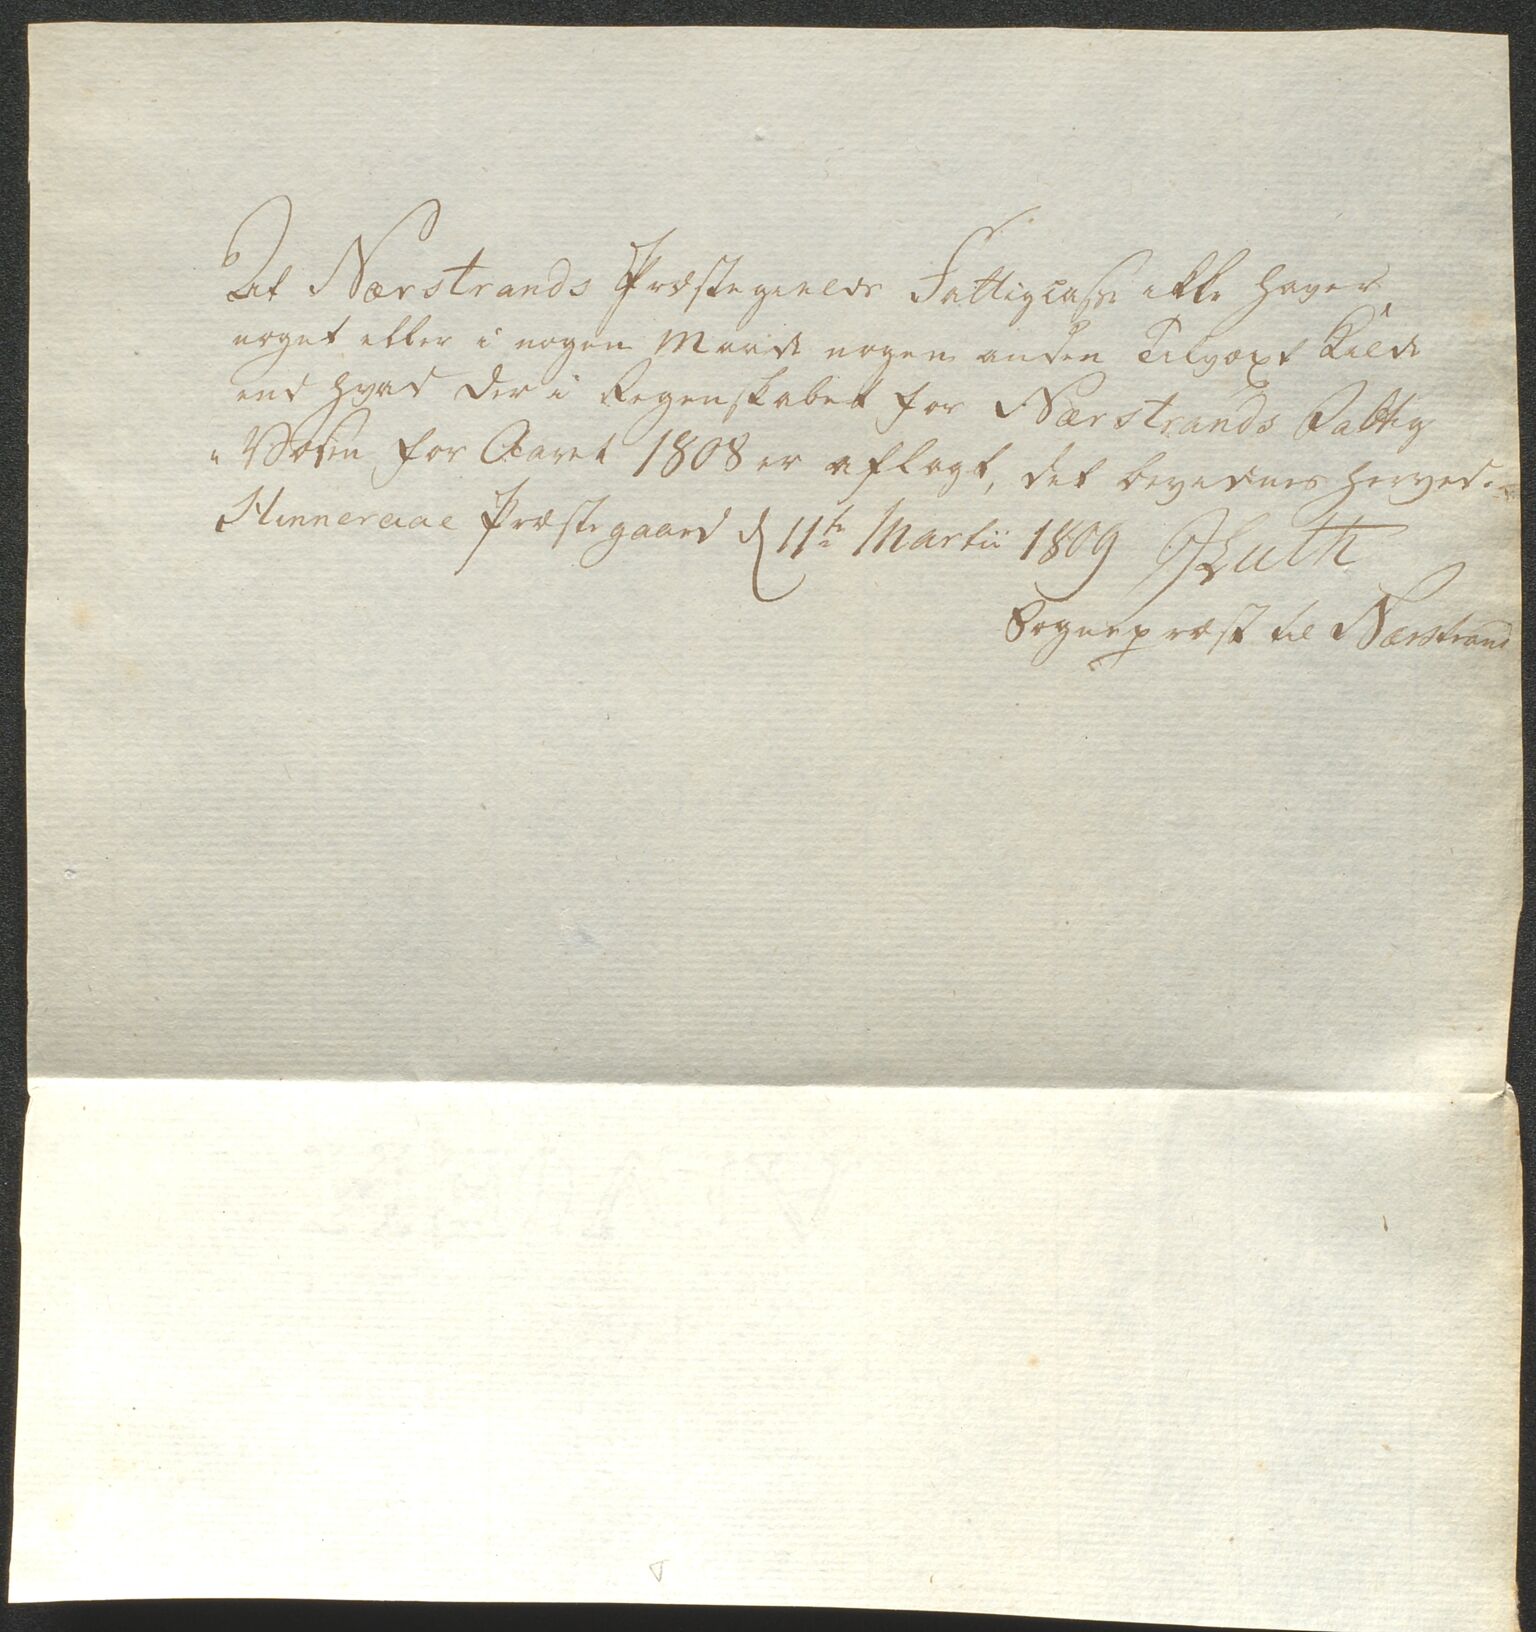 At Nærstrands Præstegields Fattigcasse ikke haver
noget eller i nogen Maade nogen anden Tilvoxt Kilde
end hvad der i Regenskabet for Nærstrands Fattig
"Væsen for Aaret 1808 er aflagt, det bevidnes herved.
Hinneraae Præstegaard d 11te Martii 1809
Sognepræst til Nærstrand